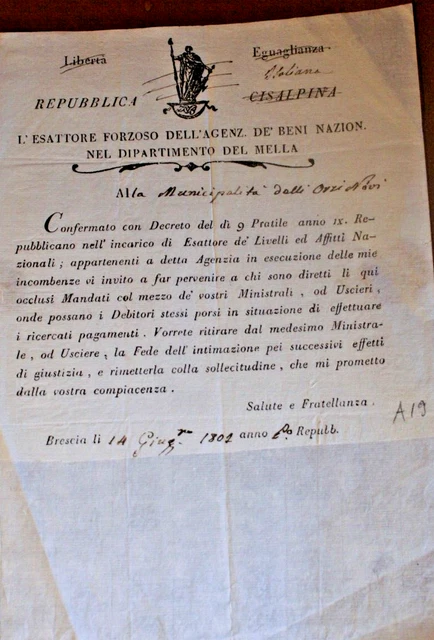 Libertà Eguaglianza
Italiana
REPUBBLICA CISALPINA
L'ESATTORE FORZOSO DELL'AGENZ. DE' BENI NAZION.
NEL DIPARTIMENTO DEL MELLA
Alla Municipalità delli Orzi Novi
Confermato con Decreto del dì 9 Pratile anno IX. Re-
pubblicano nell' incarico di Esattore de' Livelli ed Affitti Na-
zionali; appartenenti a detta Agenzia in esecuzione delle mie
incombenze vi invito a far pervenire a chi sono diretti li qui
occlusi Mandati col mezzo de' vostri Ministrali, od Uscieri,
onde possano i Debitori stessi porsi in situazione di effettuare
i ricercati pagamenti. Vorrete ritirare dal medesimo Ministra-
le, od Usciere, la Fede dell' intimazione pei successivi effetti
di giustizia, e rimetterla colla sollecitudine, che mi prometto
dalla vostra compiacenza.
Salute e Fratellanza.
A19
Brescia li 14 Giug.no 1802 anno P.o Repubb.